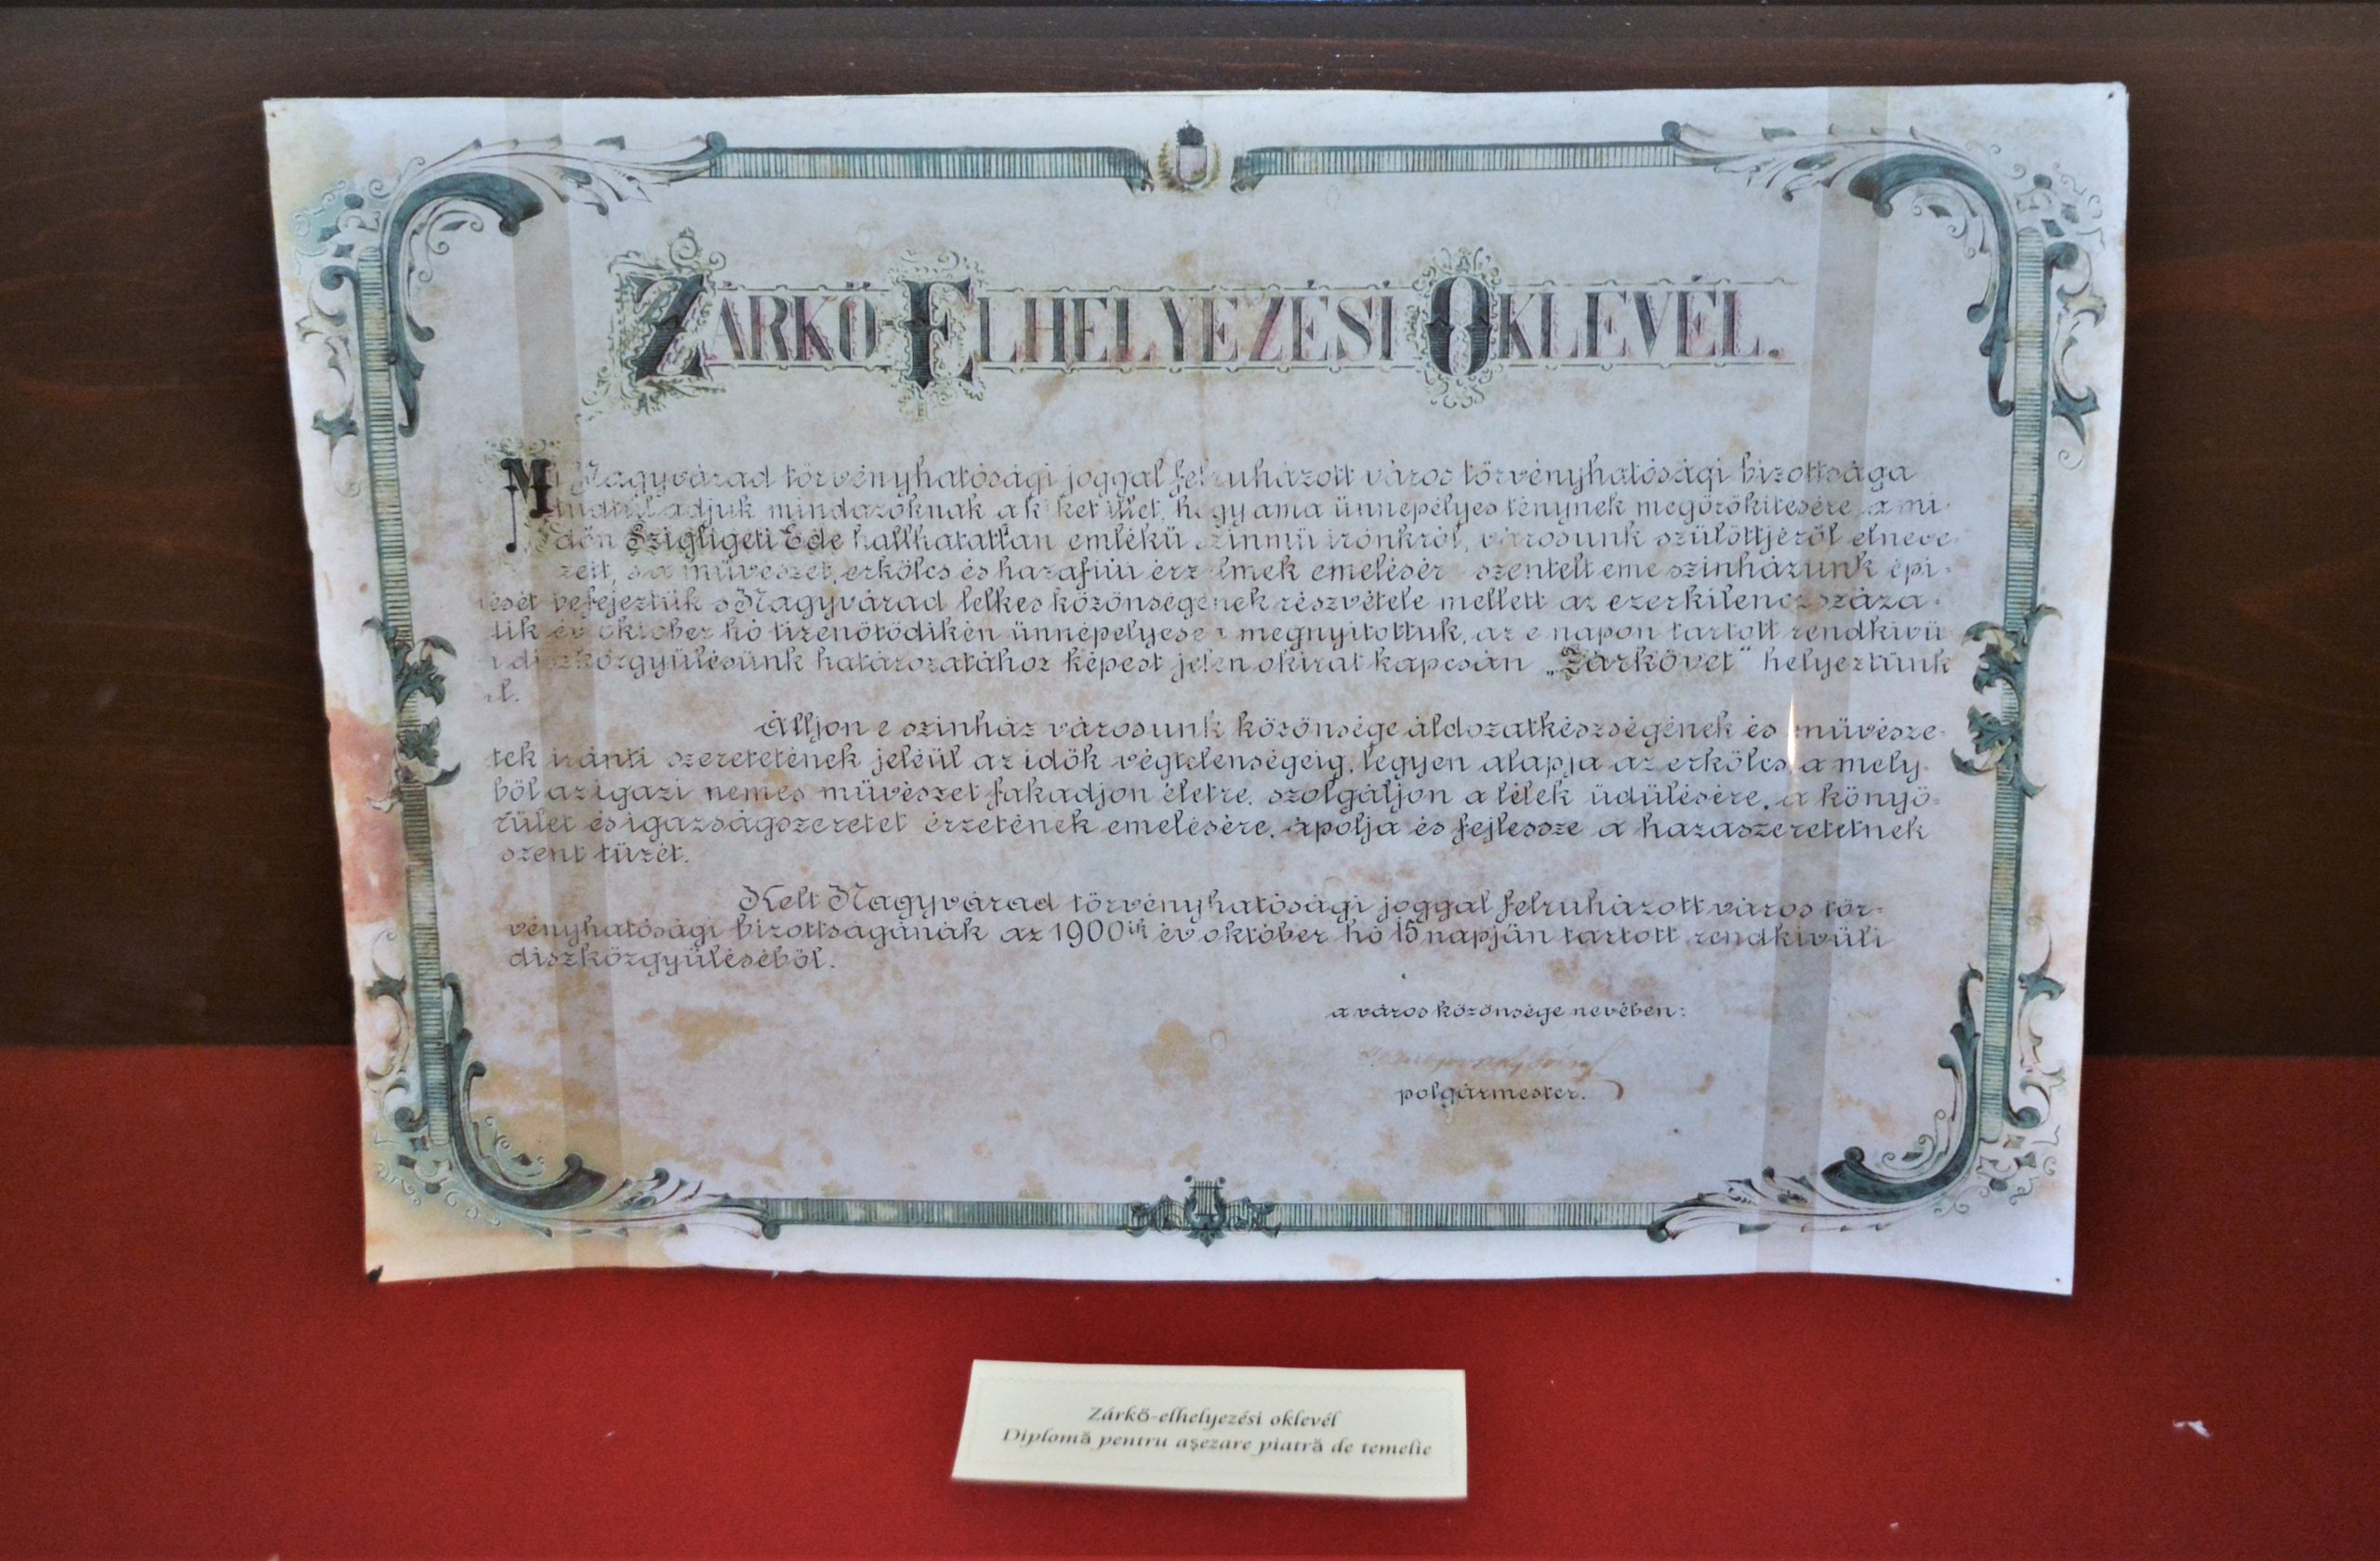 ZÁRKŐ-ELHELYEZÉSI OKLEVÉL.
Mi Nagyvárad törvényhatósági joggal felruházott város törvényhatósági bizottsága
tudtul adjuk mindazoknak a kiket illet, hogy ama ünnepélyes ténynek megörökitésére, a mi-
dőn Szigligeti Ede hallhatatlan emlékü szinmü irónkról, városunk szülöttjéről elneve-
zett, s a müvészet, erkölcs és hazafiui érzelmek emelésére szentelt eme szinházunk épi-
tését befejeztük s Nagyvárad lelkes közönségének részvétele mellett az ezerkilenczszáza-
dik év október hó tizenötödikén ünnepélyesen megnyitottuk, az e napon tartott rendkivü-
li diszközgyülésünk határozatához képest jelen okirat kapcsán „Zárkövet" helyeztünk
el.
Álljon e szinház városunk közönsége áldozatkészségének és müvésze-
tek iránti szeretetének jeléül az idők végtelenségeig, legyen alapja az erkölcs, a mely-
ből az igazi nemes müvészet fakadjon életre, szolgáljon a lélek üdülésére, a könyö-
rület és igazságszeretet érzetének emelésére, ápolja és fejlessze a hazaszeretetnek
szent tüzét.
Kelt Nagyvárad törvényhatósági joggal felruházott város tör-
vényhatósági bizottságának az 1900ik év október hó 15 napján tartott rendkivüli
diszközgyüléséből.
a város közönsége nevében:
polgármester.
Zárkő-elhelyezési oklevél
Diplomă pentru aşezare piatră de temelie